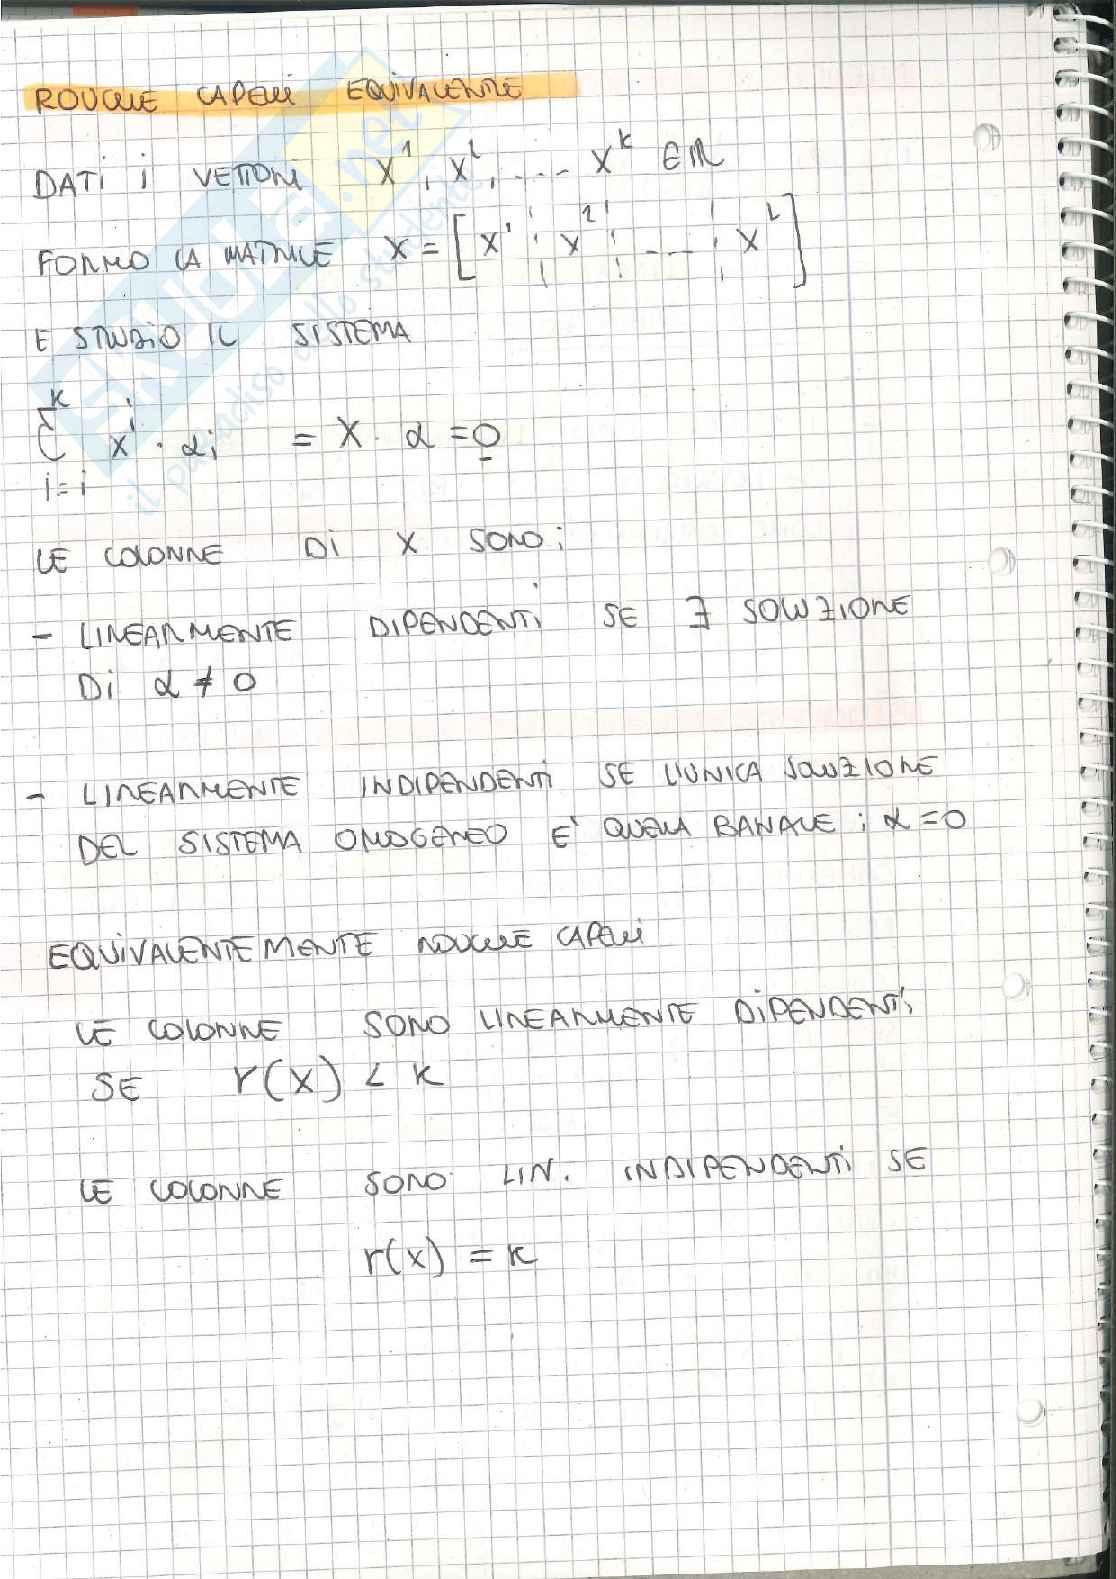 ROUCHE CAPELLI EQUIVALENTE
DATI I VETTORI X¹, X², ... X^K ∈ ℝ
FORMO LA MATRICE X = [X¹ ¦ X² ¦ ... ¦ X^L]
E STUDIO IL SISTEMA
K
Σ x^i · α_i = X · α = 0
i=i
LE COLONNE DI X SONO:
- LINEARMENTE DIPENDENTI SE ∃ SOLUZIONE
DI α ≠ 0
- LINEARMENTE INDIPENDENTI SE L'UNICA SOLUZIONE
DEL SISTEMA OMOGENEO E' QUELLA BANALE : α = 0
EQUIVALENTEMENTE ROUCHE CAPELLI
LE COLONNE SONO LINEARMENTE DIPENDENTI
SE r(X) < K
LE COLONNE SONO LIN. INDIPENDENTI SE
r(x) = K
SKUOLA.net
il paradiso dello studente